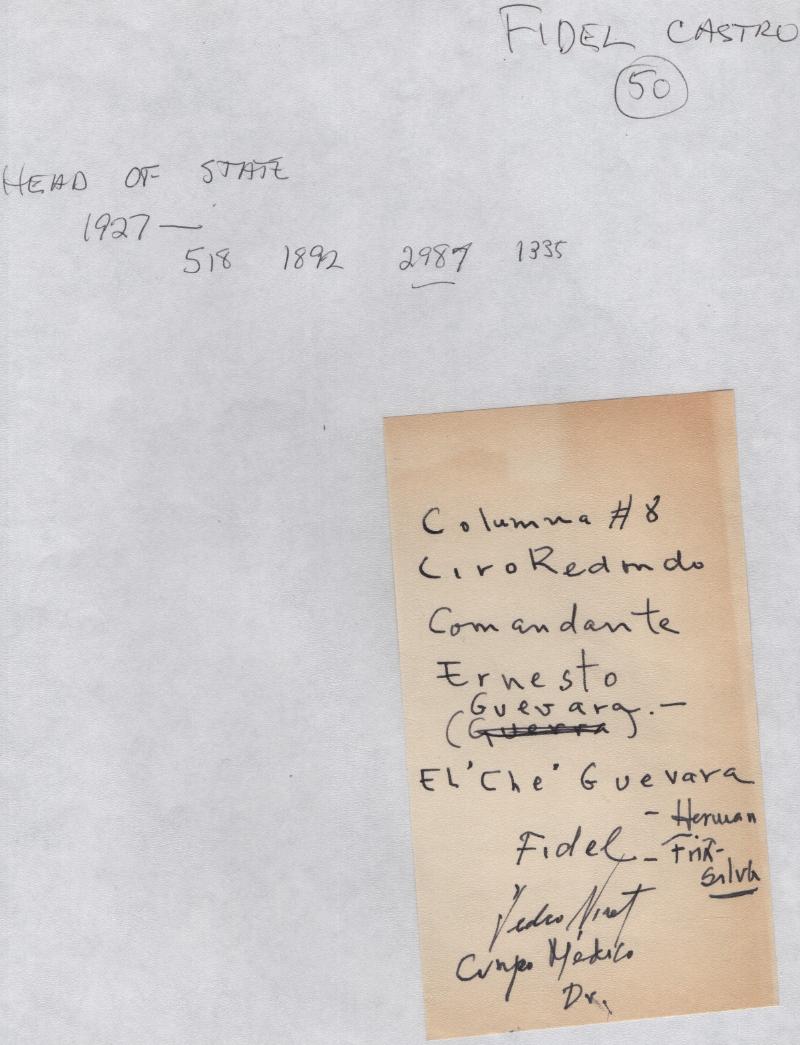 FIDEL CASTRO
50
HEAD OF STATE
1927—
518 1892 2987 1335
Columna #8
Ciro Redondo
Comandante
Ernesto
Guevara.—
(Guerra)
El "Che" Guevara
- Herman
Fidel -
Silva
Pedro
Médico
Dr.